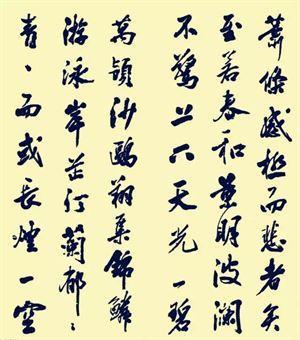 蕭條感極而悲者矣
至若春和景明波瀾
不驚上下天光一碧
萬頃沙鷗翔集錦鱗
游泳岸芷汀蘭郁〻
青〻而或長煙一空